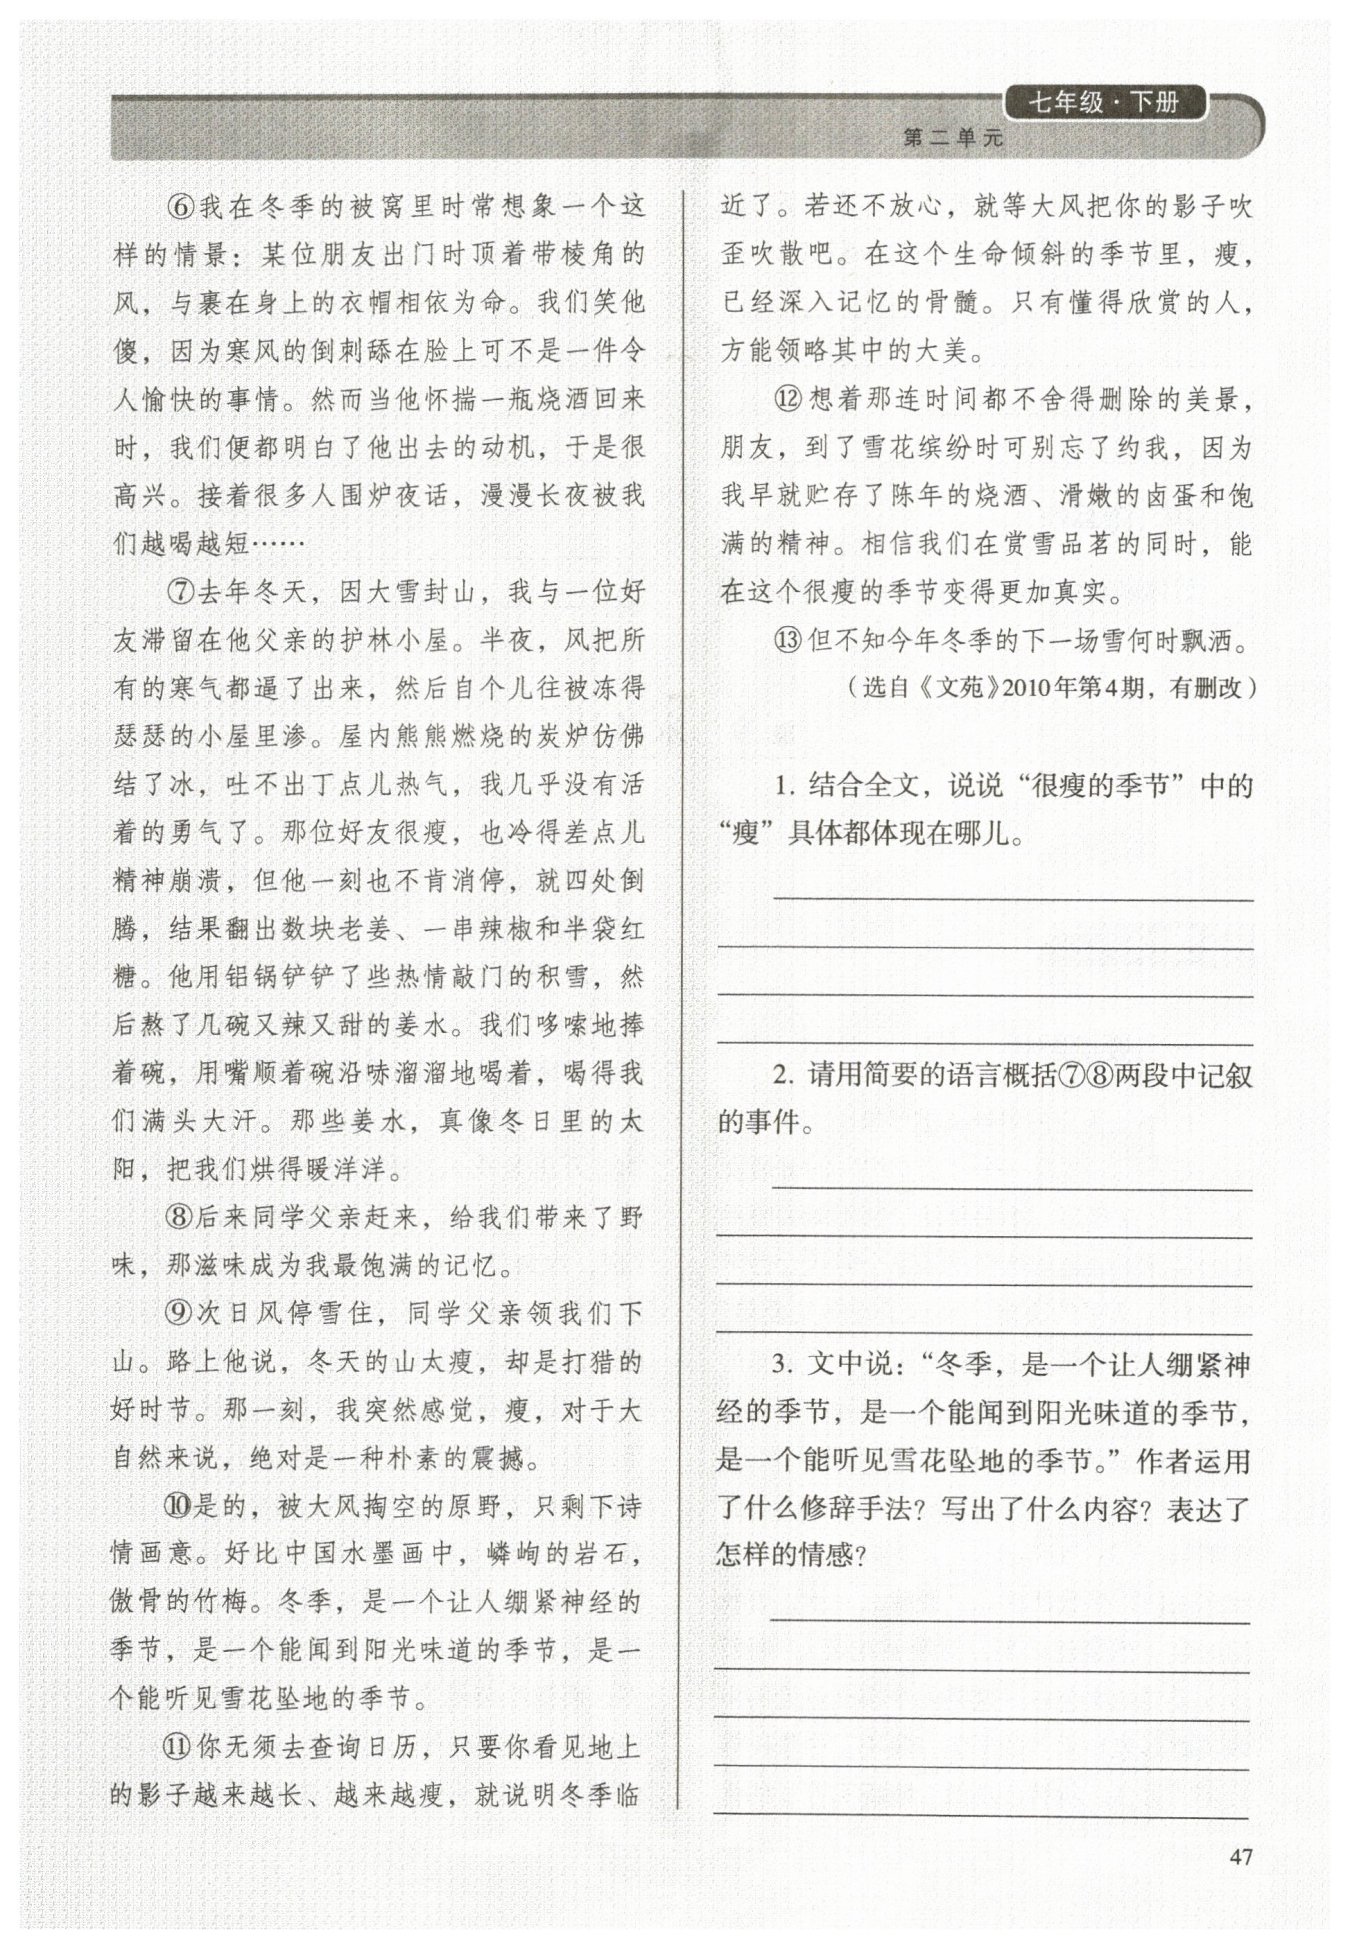 七年级·下册
第二单元
⑥我在冬季的被窝里时常想象一个这
样的情景：某位朋友出门时顶着带棱角的
风，与裹在身上的衣帽相依为命。我们笑他
傻，因为寒风的倒刺舔在脸上可不是一件令
人愉快的事情。然而当他怀揣一瓶烧酒回来
时，我们便都明白了他出去的动机，于是很
高兴。接着很多人围炉夜话，漫漫长夜被我
们越喝越短……
⑦去年冬天，因大雪封山，我与一位好
友滞留在他父亲的护林小屋。半夜，风把所
有的寒气都逼了出来，然后自个儿往被冻得
瑟瑟的小屋里渗。屋内熊熊燃烧的炭炉仿佛
结了冰，吐不出丁点儿热气，我几乎没有活
着的勇气了。那位好友很瘦，也冷得差点儿
精神崩溃，但他一刻也不肯消停，就四处倒
腾，结果翻出数块老姜、一串辣椒和半袋红
糖。他用铝锅铲铲了些热情敲门的积雪，然
后熬了几碗又辣又甜的姜水。我们哆嗦地捧
着碗，用嘴顺着碗沿哧溜溜地喝着，喝得我
们满头大汗。那些姜水，真像冬日里的太
阳，把我们烘得暖洋洋。
⑧后来同学父亲赶来，给我们带来了野
味，那滋味成为我最饱满的记忆。
⑨次日风停雪住，同学父亲领我们下
山。路上他说，冬天的山太瘦，却是打猎的
好时节。那一刻，我突然感觉，瘦，对于大
自然来说，绝对是一种朴素的震撼。
⑩是的，被大风掏空的原野，只剩下诗
情画意。好比中国水墨画中，嶙峋的岩石，
傲骨的竹梅。冬季，是一个让人绷紧神经的
季节，是一个能闻到阳光味道的季节，是一
个能听见雪花坠地的季节。
⑪你无须去查询日历，只要你看见地上
的影子越来越长、越来越瘦，就说明冬季临
近了。若还不放心，就等大风把你的影子吹
歪吹散吧。在这个生命倾斜的季节里，瘦，
已经深入记忆的骨髓。只有懂得欣赏的人，
方能领略其中的大美。
⑫想着那连时间都不舍得删除的美景，
朋友，到了雪花缤纷时可别忘了约我，因为
我早就贮存了陈年的烧酒、滑嫩的卤蛋和饱
满的精神。相信我们在赏雪品茗的同时，能
在这个很瘦的季节变得更加真实。
⑬但不知今年冬季的下一场雪何时飘洒。
（选自《文苑》2010年第4期，有删改）
1. 结合全文，说说“很瘦的季节”中的
“瘦”具体都体现在哪儿。
2. 请用简要的语言概括⑦⑧两段中记叙
的事件。
3. 文中说：“冬季，是一个让人绷紧神
经的季节，是一个能闻到阳光味道的季节，
是一个能听见雪花坠地的季节。”作者运用
了什么修辞手法？写出了什么内容？表达了
怎样的情感？
47